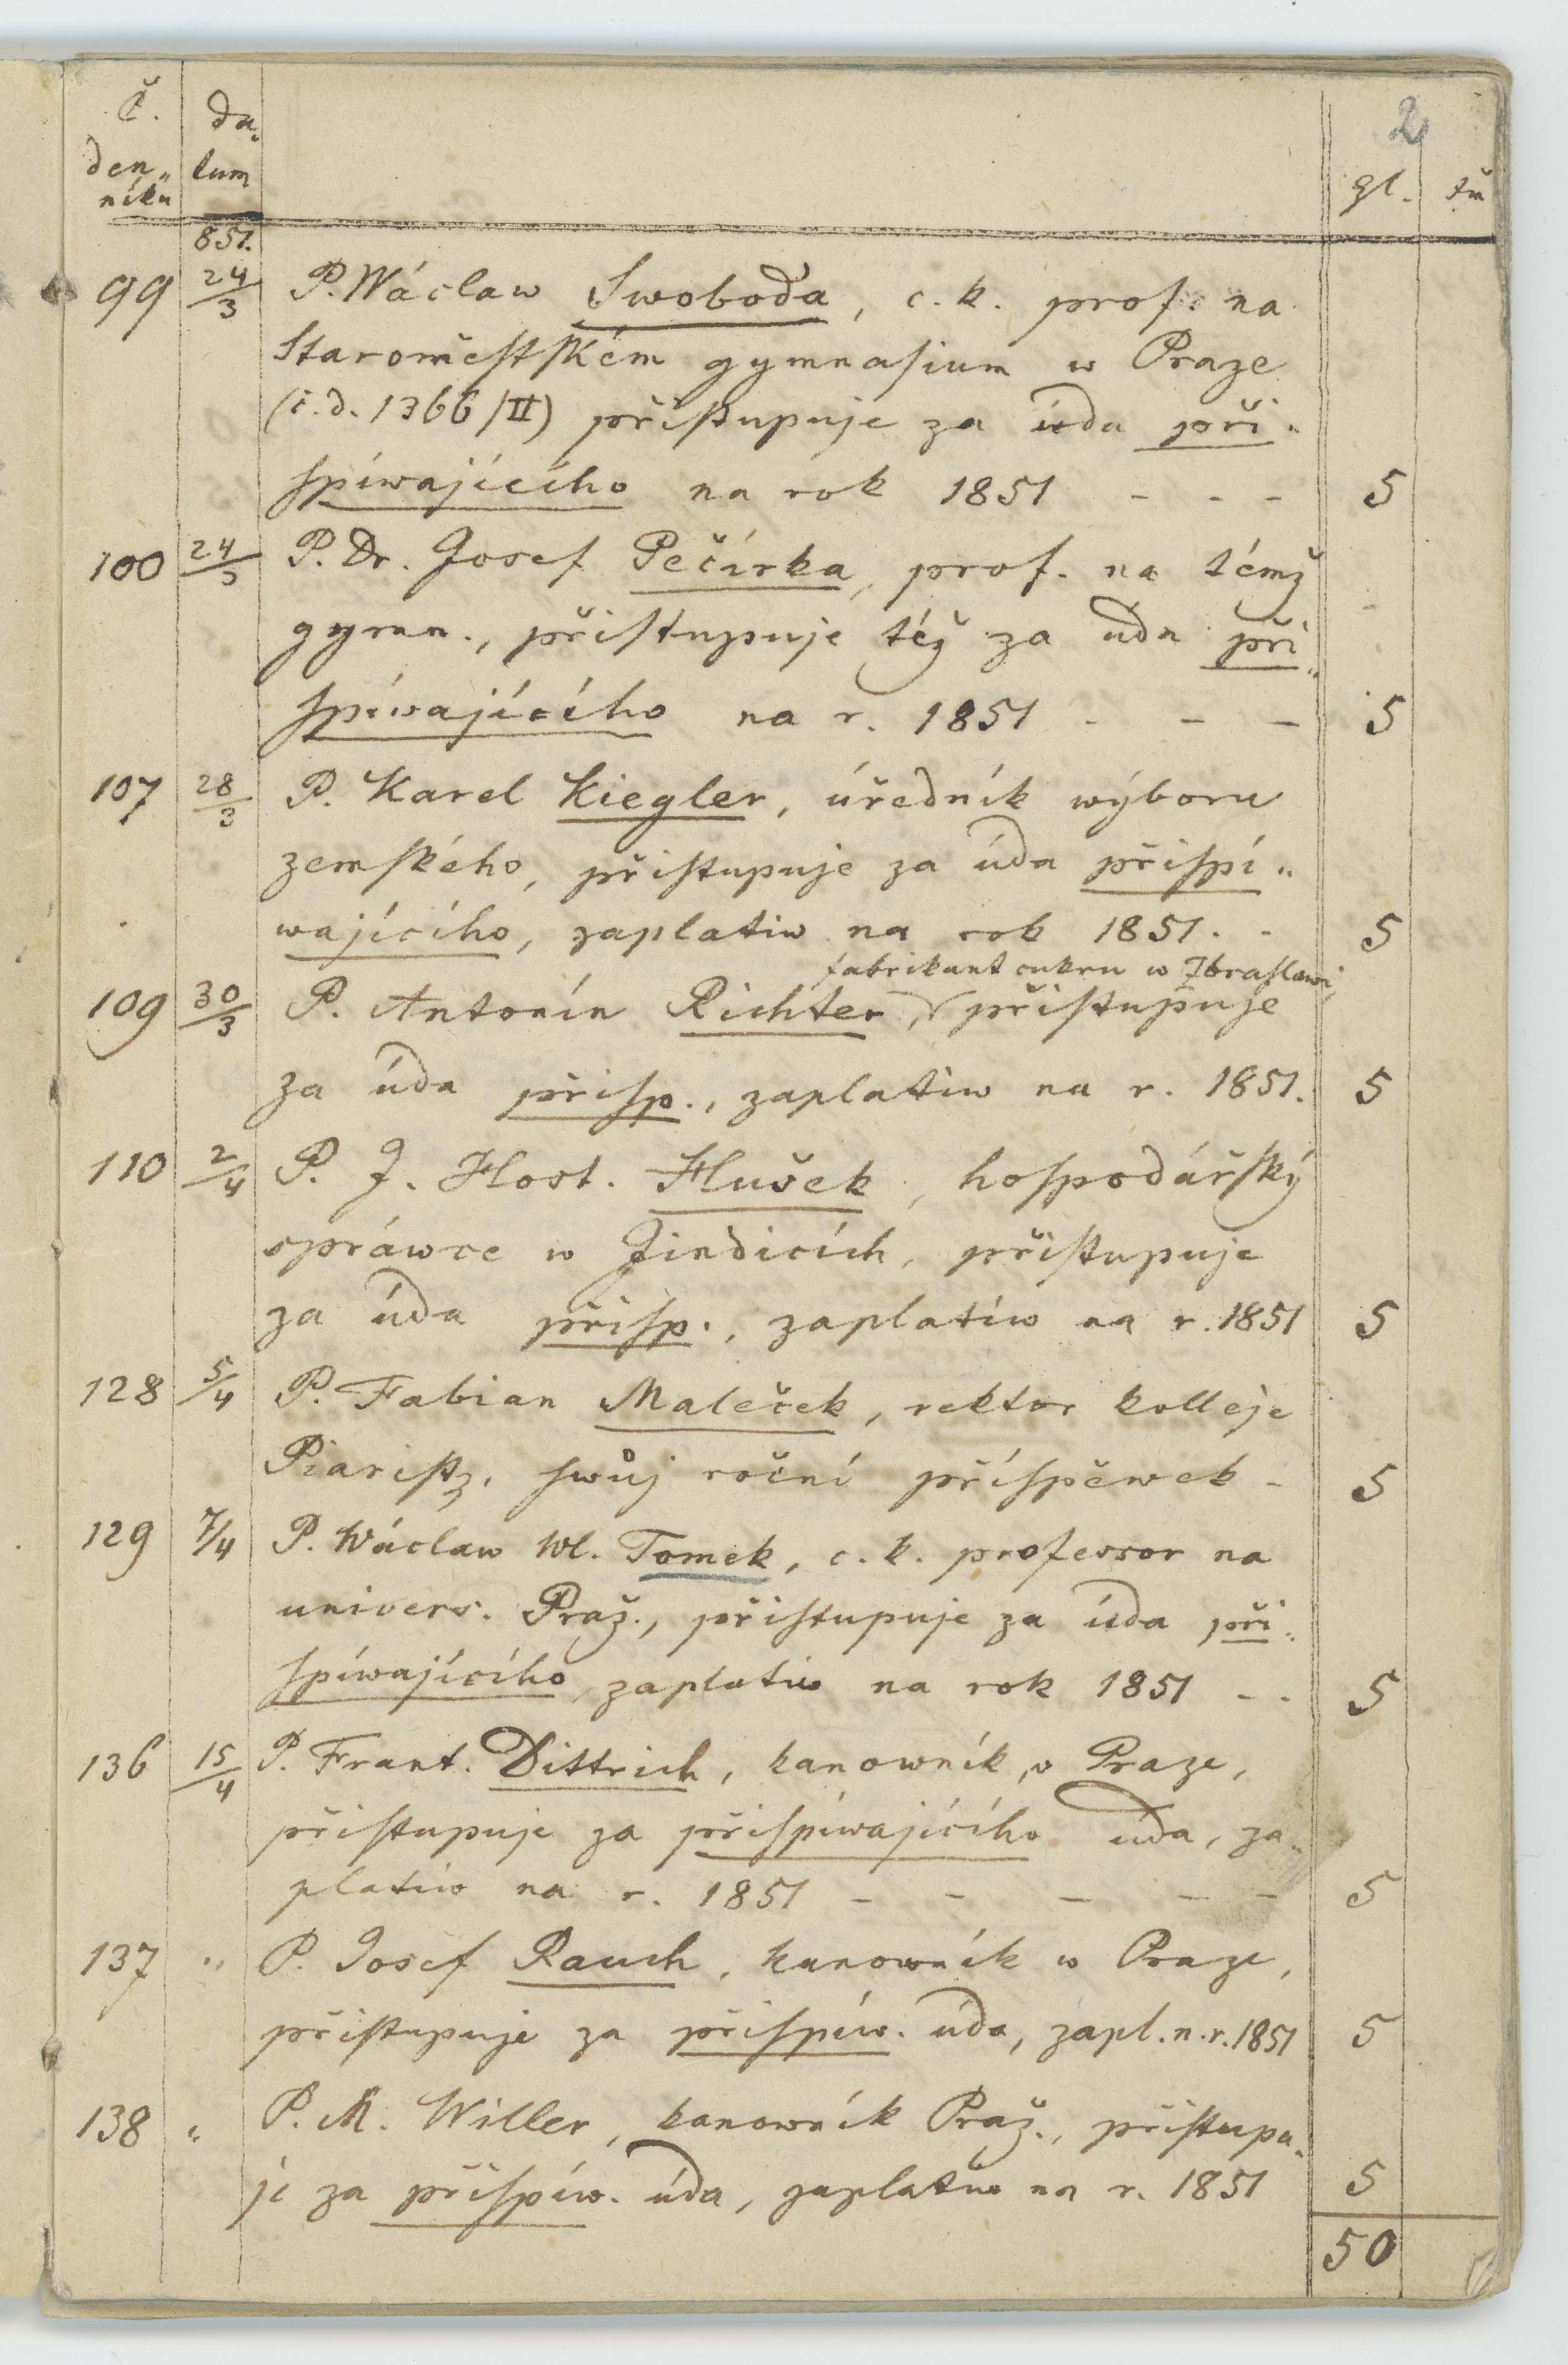 2
č. da„
den„ tum
níku
gl. tři
851.
99 24/3 P. Wáclaw Swoboda, c. k. prof. na
Staroměstském gymnasium w Praze
(č. d. 1366/II) přistupuje za úda při„
spíwajícího na rok 1851 - - - 5
100 24/3 P. Dr. Josef Pečírka, prof. na témž
gymn., přistupuje též za úda při„
spíwajícího na r. 1851 - - - 5
107 28/3 P. Karel Kiegler, úředník wýboru
zemského, přistupuje za úda přispí„
wajícího, zaplatiw na rok 1851. - 5
fabrikant cukru w Zbraslawi,
109 30/3 P. Antonín Richter, přistupuje
za úda přisp., zaplatiw na r. 1851. 5
110 2/4 P. J. Host. Hušek, hospodářský
spráwce w Jindicích, přistupuje
za úda přisp., zaplatiw na r. 1851 5
128 5/4 P. Fabian Maleček, rektor kolleje
Piarist., swůj roční příspěwek - 5
129 7/4 P. Wáclaw Wl. Tomek, c. k. professor na
univers. Praž., přistupuje za úda při„
spíwajícího, zaplatiw na rok 1851 - - 5
136 15/4 P. Frant. Dittrich, kanowník w Praze,
přistupuje za přispíwajícího úda, za„
platiw na r. 1851 - - - - - 5
137 „ P. Josef Rauch, kanowník w Praze,
přistupuje za přispíw. úda, zapl. n. r. 1851 5
138 „ P. M. Willer, kanowník Praž., přistupu„
je za přispíw. úda, zaplatiw na r. 1851 5
50